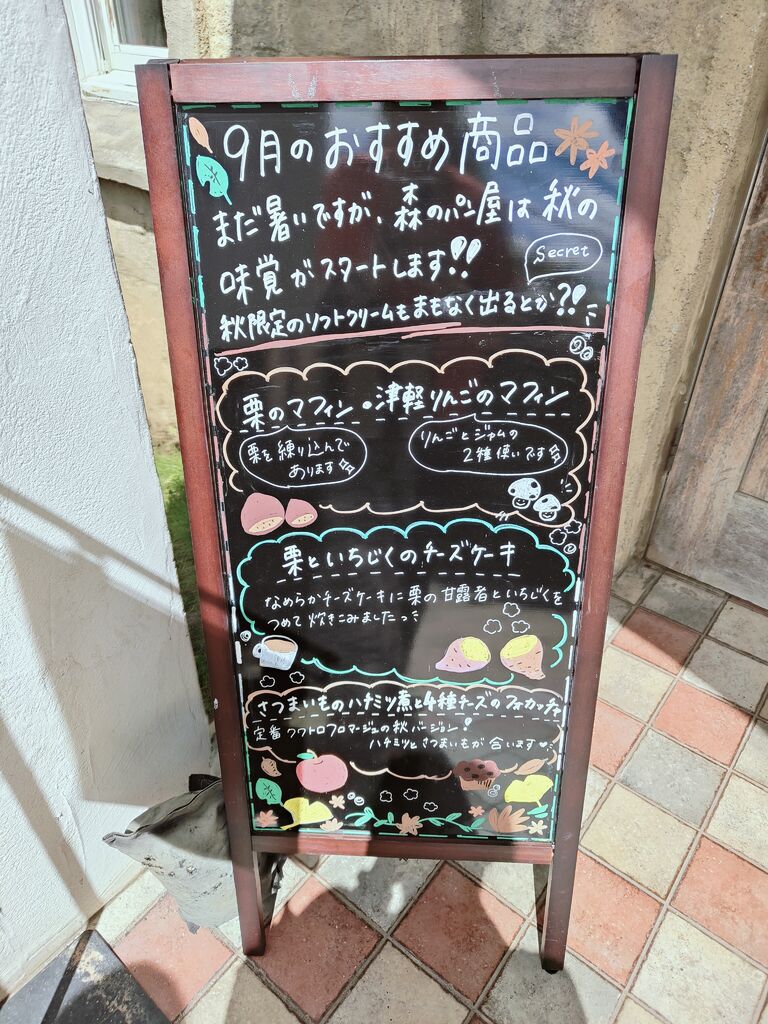 9月のおすすめ商品
まだ暑いですが、森のパン屋は秋の
味覚がスタートします!!
Secret
秋限定のソフトクリームもまもなく出るとか?!
栗のマフィン・津軽りんごのマフィン
栗を練り込んで
あります
りんごとジャムの
2種使いです
栗といちじくのチーズケーキ
なめらかチーズケーキに栗の甘露煮といちじくを
つめて炊きこみました
さつまいものハチミツ煮と4種チーズのフォカッチャ
定番クワトロフロマージュの秋バージョン!
ハチミツとさつまいもが合います